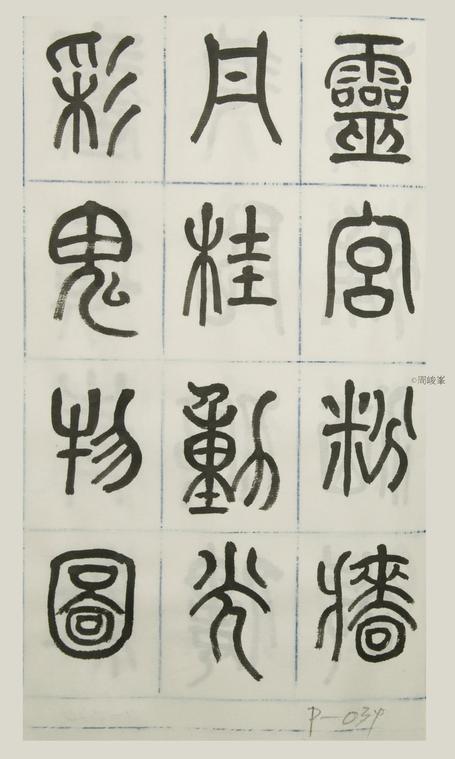 靈宮粉牆
丹桂動光
彩鬼物圖
©周峻峯
P-034